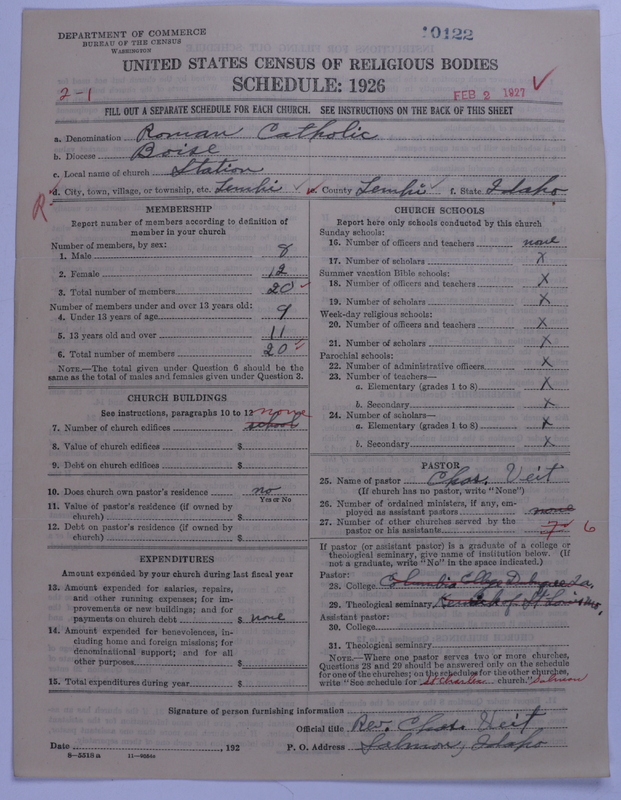 DEPARTMENT OF COMMERCE
BUREAU OF THE CENSUS
WASHINGTON
10122
UNITED STATES CENSUS OF RELIGIOUS BODIES
SCHEDULE: 1926
2-1
FEB 2 1927
FILL OUT A SEPARATE SCHEDULE FOR EACH CHURCH. SEE INSTRUCTIONS ON THE BACK OF THIS SHEET
a. Denomination Roman Catholic
b. Diocese Boise
c. Local name of church Station
d. City, town, village, or township, etc. Lemhi e. County Lemhi f. State Idaho
R
MEMBERSHIP
Report number of members according to definition of
member in your church
Number of members, by sex:
1. Male 8
2. Female 12
3. Total number of members 20
Number of members under and over 13 years old:
4. Under 13 years of age 9
5. 13 years old and over 11
6. Total number of members 20
NOTE.—The total given under Question 6 should be the
same as the total of males and females given under Question 3.
CHURCH BUILDINGS
See instructions, paragraphs 10 to 12 none
7. Number of church edifices school
8. Value of church edifices $
9. Debt on church edifices $
10. Does church own pastor's residence no
Yes or No
11. Value of pastor's residence (if owned by
church) $
12. Debt on pastor's residence (if owned by
church) $
EXPENDITURES
Amount expended by your church during last fiscal year
13. Amount expended for salaries, repairs,
and other running expenses; for im-
provements or new buildings; and for
payments on church debt $ none
14. Amount expended for benevolences, in-
cluding home and foreign missions; for
denominational support; and for all
other purposes $
15. Total expenditures during year $
CHURCH SCHOOLS
Report here only schools conducted by this church
Sunday schools:
16. Number of officers and teachers none
17. Number of scholars X
Summer vacation Bible schools:
18. Number of officers and teachers X
19. Number of scholars X
Week-day religious schools:
20. Number of officers and teachers X
21. Number of scholars X
Parochial schools:
22. Number of administrative officers X
23. Number of teachers—
a. Elementary (grades 1 to 8) X
b. Secondary X
24. Number of scholars—
a. Elementary (grades 1 to 8) X
b. Secondary X
PASTOR
25. Name of pastor Chas. Veit
(If church has no pastor, write "None")
26. Number of ordained ministers, if any, em-
ployed as assistant pastors none
27. Number of other churches served by the
pastor or his assistants 7 6
If pastor (or assistant pastor) is a graduate of a college or
theological seminary, give name of institution below. (If
not a graduate, write "No" in the space indicated.)
Pastor:
28. College Columbia College Dubuque Ia.
29. Theological seminary Kenrick of St Louis Mo.
Assistant pastor:
30. College
31. Theological seminary
NOTE.—Where one pastor serves two or more churches,
Questions 28 and 29 should be answered only on the schedule
for one of the churches; on the schedules for the other churches,
write "See schedule for St Charles church." Salmon
Signature of person furnishing information
Official title Rev. Chas. Veit
Date , 192 P. O. Address Salmon, Idaho
8—5518 a